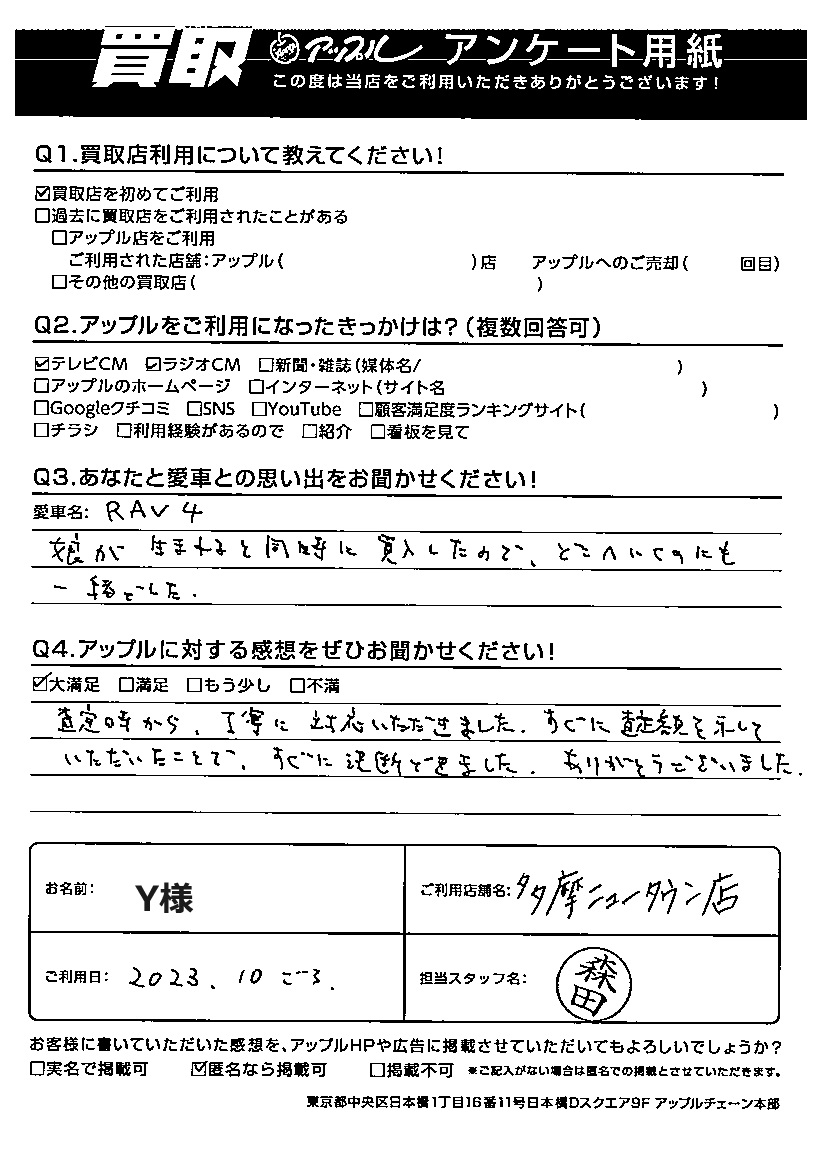 買取 アップル アンケート用紙
この度は当店をご利用いただきありがとうございます!
Q1.買取店利用について教えてください!
☑買取店を初めてご利用
□過去に買取店をご利用されたことがある
□アップル店をご利用
ご利用された店舗:アップル( )店 アップルへのご売却( 回目)
□その他の買取店( )
Q2.アップルをご利用になったきっかけは?(複数回答可)
☑テレビCM ☑ラジオCM □新聞・雑誌(媒体名/ )
□アップルのホームページ □インターネット(サイト名 )
□Googleクチコミ □SNS □YouTube □顧客満足度ランキングサイト( )
□チラシ □利用経験があるので □紹介 □看板を見て
Q3.あなたと愛車との思い出をお聞かせください!
愛車名: RAV4
娘が生まれると同時に買入したので、どこへいくのにも
一緒でした.
Q4.アップルに対する感想をぜひお聞かせください!
☑大満足 □満足 □もう少し □不満
査定時から、丁寧に対応いただきました.すぐに査定額を示して
いただいたことで、すぐに決断できました.ありがとうございました.
お名前: Y様
ご利用店舗名: 多摩ニュータウン店
ご利用日: 2023.10ごろ.
担当スタッフ名: 森田
お客様に書いていただいた感想を、アップルHPや広告に掲載させていただいてもよろしいでしょうか?
□実名で掲載可 ☑匿名なら掲載可 □掲載不可 ※ご記入がない場合は匿名での掲載とさせていただきます。
東京都中央区日本橋1丁目16番11号日本橋Dスクエア9F アップルチェーン本部